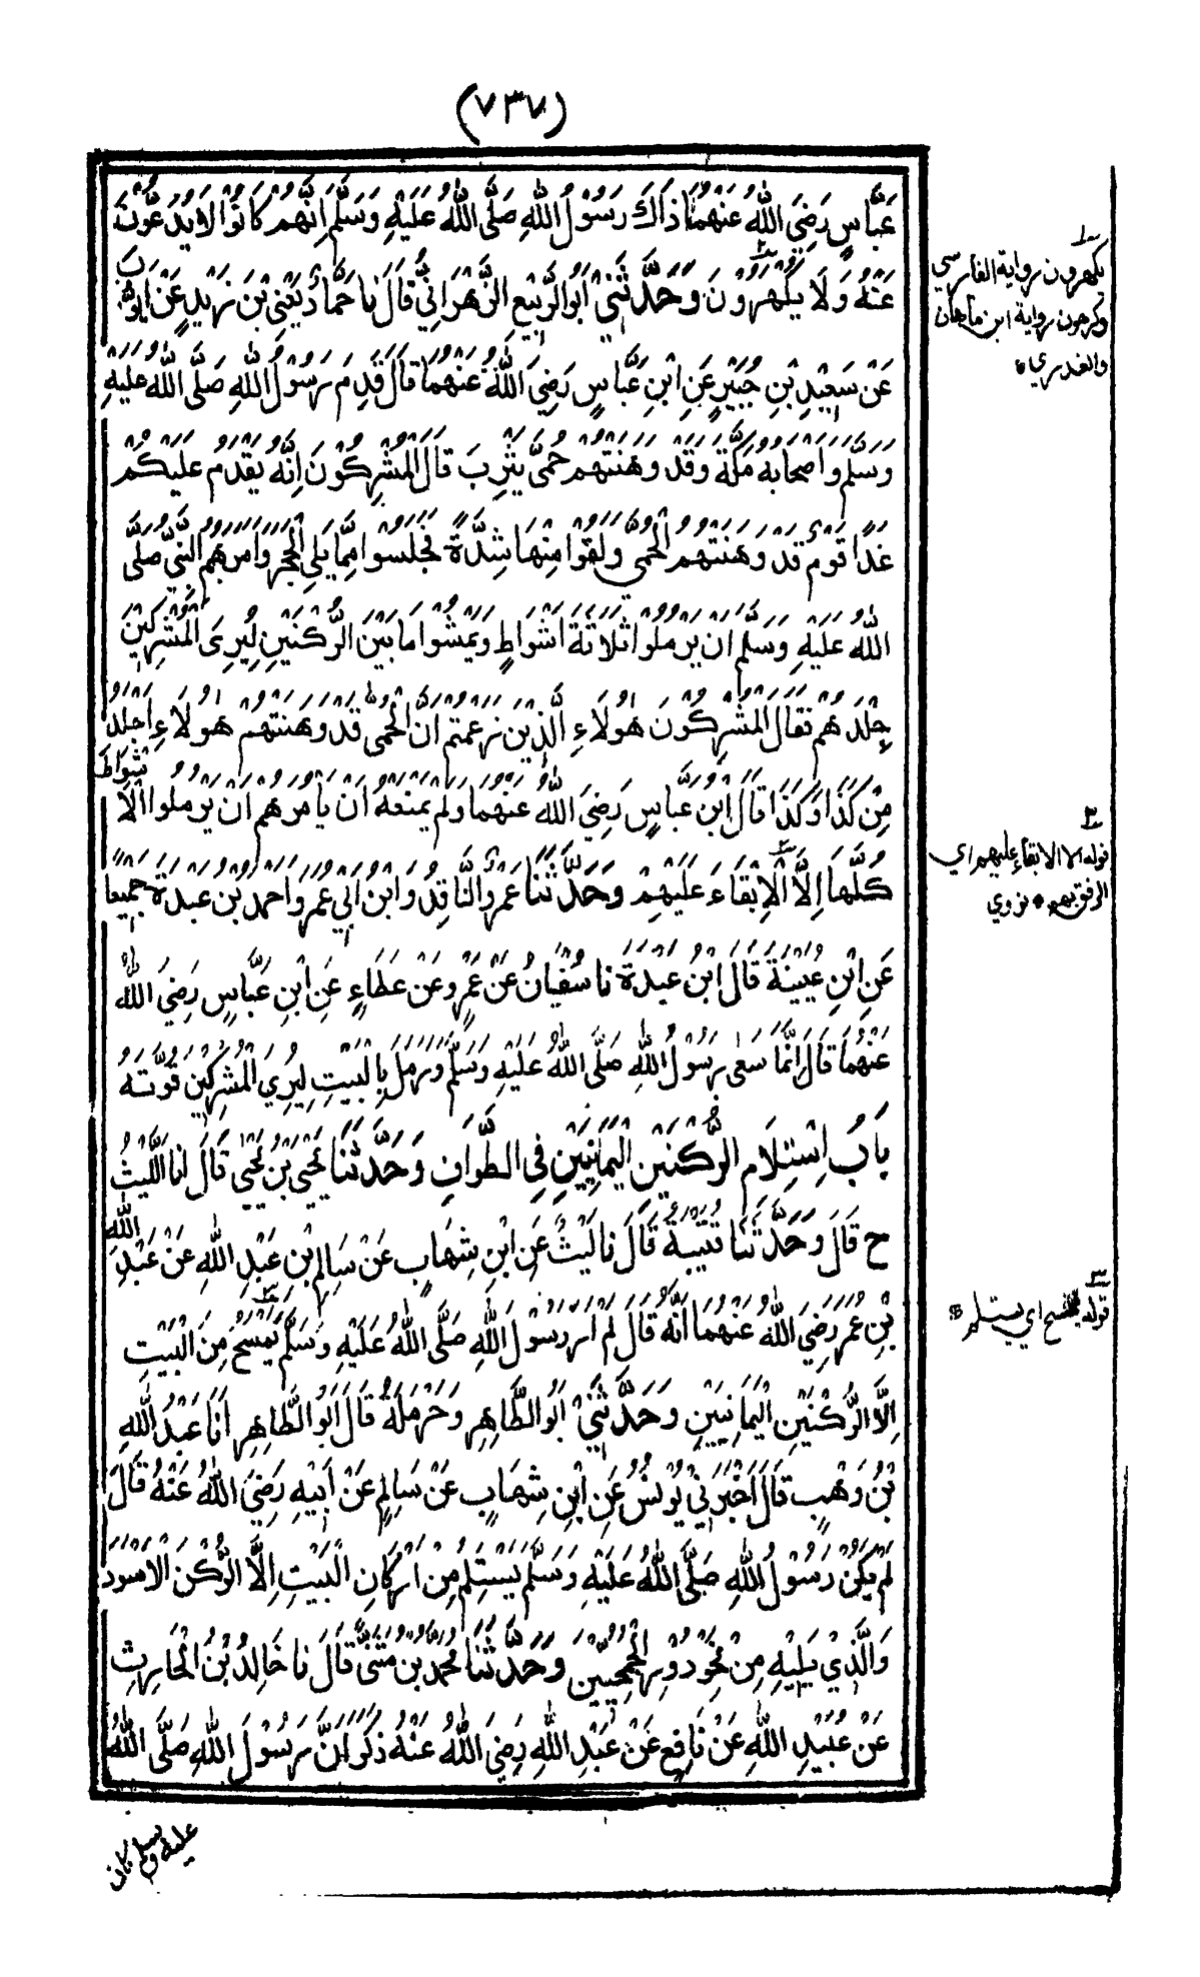 (٧٣٧)
عَبَّاسٍ رَضِيَ اللهُ عَنْهُمَا ذَاكَ رَسُوْلُ اللهِ صَلَّى اللهُ عَلَيْهِ وَسَلَّمَ اِنَّهُمْ كَانُوْا لَا يُدَعُّوْنَ
عَنْهُ وَلَا يُكْهَرُوْنَ وَحَدَّثَنِيْ اَبُو الرَّبِيْعِ الزَّهْرَانِيُّ قَالَ نا حَمَّادٌ يَعْنِي بْنَ زَيْدٍ عَنْ اَيُّوْبَ
عَنْ سَعِيْدِ بْنِ جُبَيْرٍ عَنِ ابْنِ عَبَّاسٍ رَضِيَ اللهُ عَنْهُمَا قَالَ قَدِمَ رَسُوْلُ اللهِ صَلَّى اللهُ عَلَيْهِ
وَسَلَّمَ وَاَصْحَابُهُ مَكَّةَ وَقَدْ وَهَنَتْهُمْ حُمّٰى يَثْرِبَ قَالَ الْمُشْرِكُوْنَ اِنَّهُ يَقْدَمُ عَلَيْكُمْ
غَدًا قَوْمٌ قَدْ وَهَنَتْهُمُ الْحُمّٰى وَلَقُوْا مِنْهَا شِدَّةً فَجَلَسُوْا مِمَّا يَلِي الْحِجْرَ وَاَمَرَهُمُ النَّبِيُّ صَلَّى
اللهُ عَلَيْهِ وَسَلَّمَ اَنْ يَرْمُلُوْا ثَلَاثَةَ اَشْوَاطٍ وَيَمْشُوْا مَا بَيْنَ الرُّكْنَيْنِ لِيُرِىَ الْمُشْرِكِيْنَ
جَلَدَهُمْ فَقَالَ الْمُشْرِكُوْنَ هٰؤُلَاءِ الَّذِيْنَ زَعَمْتُمْ اَنَّ الْحُمّٰى قَدْ وَهَنَتْهُمْ هٰؤُلَاءِ اَجْلَدُ
مِنْ كَذَا وَكَذَا قَالَ ابْنُ عَبَّاسٍ رَضِيَ اللهُ عَنْهُمَا وَلَمْ يَمْنَعْهُ اَنْ يَاْمُرَهُمْ اَنْ يَرْمُلُوا الْاَشْوَاطَ
كُلَّهَا اِلَّا الْاِبْقَاءَ عَلَيْهِمْ وَحَدَّثَنَا عَمْرٌو النَّاقِدُ وَابْنُ اَبِيْ عُمَرَ وَاَحْمَدُ بْنُ عَبْدَةَ جَمِيْعًا
عَنِ ابْنِ عُيَيْنَةَ قَالَ ابْنُ عَبْدَةَ نا سُفْيَانُ عَنْ عَمْرٍو عَنْ عَطَاءٍ عَنِ ابْنِ عَبَّاسٍ رَضِيَ اللهُ
عَنْهُمَا قَالَ اِنَّمَا سَعٰى رَسُوْلُ اللهِ صَلَّى اللهُ عَلَيْهِ وَسَلَّمَ وَرَمَلَ بِالْبَيْتِ لِيُرِيَ الْمُشْرِكِيْنَ قُوَّتَهُ
بَابُ اِسْتِلَامِ الرُّكْنَيْنِ الْيَمَانِيَيْنِ فِي الطَّوَافِ وَحَدَّثَنَا يَحْيَى بْنُ يَحْيٰى قَالَ انا اللَّيْثُ
ح قَالَ وَحَدَّثَنَا قُتَيْبَةُ قَالَ نا لَيْثٌ عَنِ ابْنِ شِهَابٍ عَنْ سَالِمِ بْنِ عَبْدِ اللهِ عَنْ عَبْدِ اللهِ
بْنِ عُمَرَ رَضِيَ اللهُ عَنْهُمَا اَنَّهُ قَالَ لَمْ اَرَ رَسُوْلَ اللهِ صَلَّى اللهُ عَلَيْهِ وَسَلَّمَ يَمْسَحُ مِنَ الْبَيْتِ
اِلَّا الرُّكْنَيْنِ الْيَمَانِيَيْنِ وَحَدَّثَنِيْ اَبُو الطَّاهِرِ وَحَرْمَلَةُ قَالَ اَبُو الطَّاهِرِ اَنَا عَبْدُ اللهِ
بْنُ وَهْبٍ قَالَ اَخْبَرَنِيْ يُوْنُسُ عَنِ ابْنِ شِهَابٍ عَنْ سَالِمٍ عَنْ اَبِيْهِ رَضِيَ اللهُ عَنْهُ قَالَ
لَمْ يَكُنْ رَسُوْلُ اللهِ صَلَّى اللهُ عَلَيْهِ وَسَلَّمَ يَسْتَلِمُ مِنْ اَرْكَانِ الْبَيْتِ اِلَّا الرُّكْنَ الْاَسْوَدَ
وَالَّذِيْ يَلِيْهِ مِنْ نَحْوِ دُوْرِ الْجُمَحِيِّيْنَ وَحَدَّثَنَا مُحَمَّدُ بْنُ مُثَنّٰى قَالَ نا خَالِدُ بْنُ الْحَارِثِ
عَنْ عُبَيْدِ اللهِ عَنْ نَافِعٍ عَنْ عَبْدِ اللهِ رَضِيَ اللهُ عَنْهُ ذَكَرَ اَنَّ رَسُوْلَ اللهِ صَلَّى اللهُ
عليه وسلم كان
١
يكهرون رواية الفارسي
وكرهون رواية ابن ماهان
والعذري ٥
٢
قوله الا الابقاء عليهم اي
الرفق بهم * نووي
٣
قوله يمسح اي يستلم